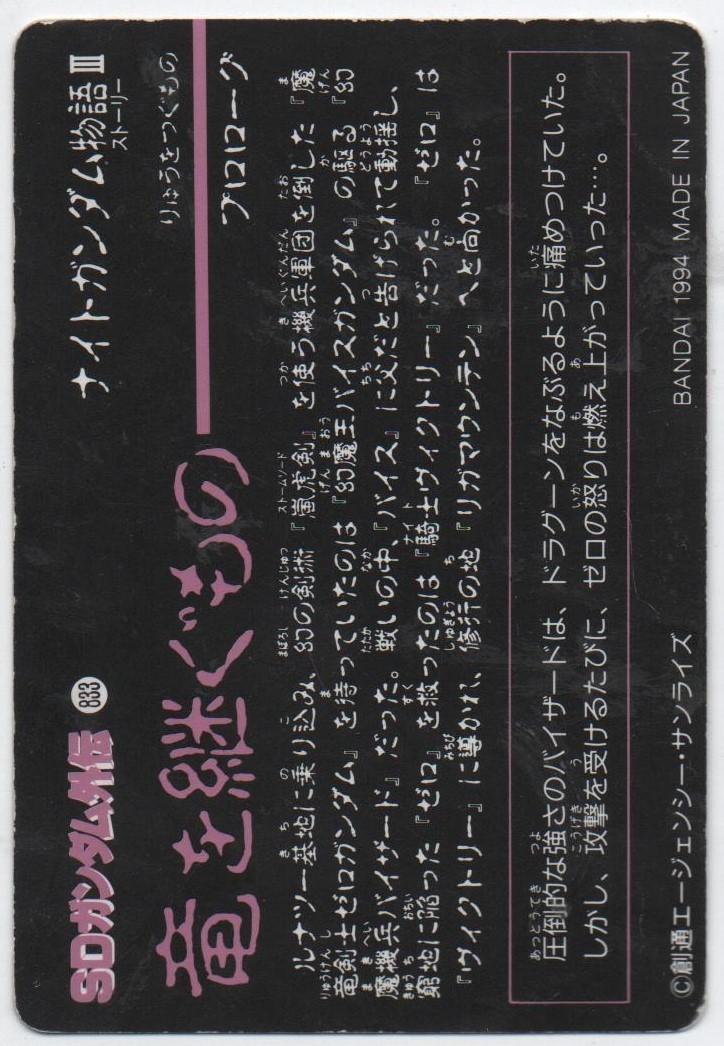 SDガンダム外伝 833
ナイトガンダム物語Ⅲ
ストーリー
りゅうをつぐもの
竜を継ぐもの
プロローグ
ルナツー基地に乗り込み、幻の剣術『嵐虎剣』を使う機兵軍団を倒した『魔
竜剣士ゼロガンダム』を待っていたのは『幻魔王バイスガンダム』の駆る『幻
魔機兵バイザード』だった。戦いの中、『バイス』に父だと告げられて動揺し、
窮地に陥った『ゼロ』を救ったのは『騎士ヴィクトリー』だった。『ゼロ』は
『ヴィクトリー』に導かれ、修行の地『リガマウンテン』へと向かった。
圧倒的な強さのバイザードは、ドラグーンをなぶるように痛めつけていた。
しかし、攻撃を受けるたびに、ゼロの怒りは燃え上がっていった…。
©創通エージェンシー・サンライズ
BANDAI 1994 MADE IN JAPAN